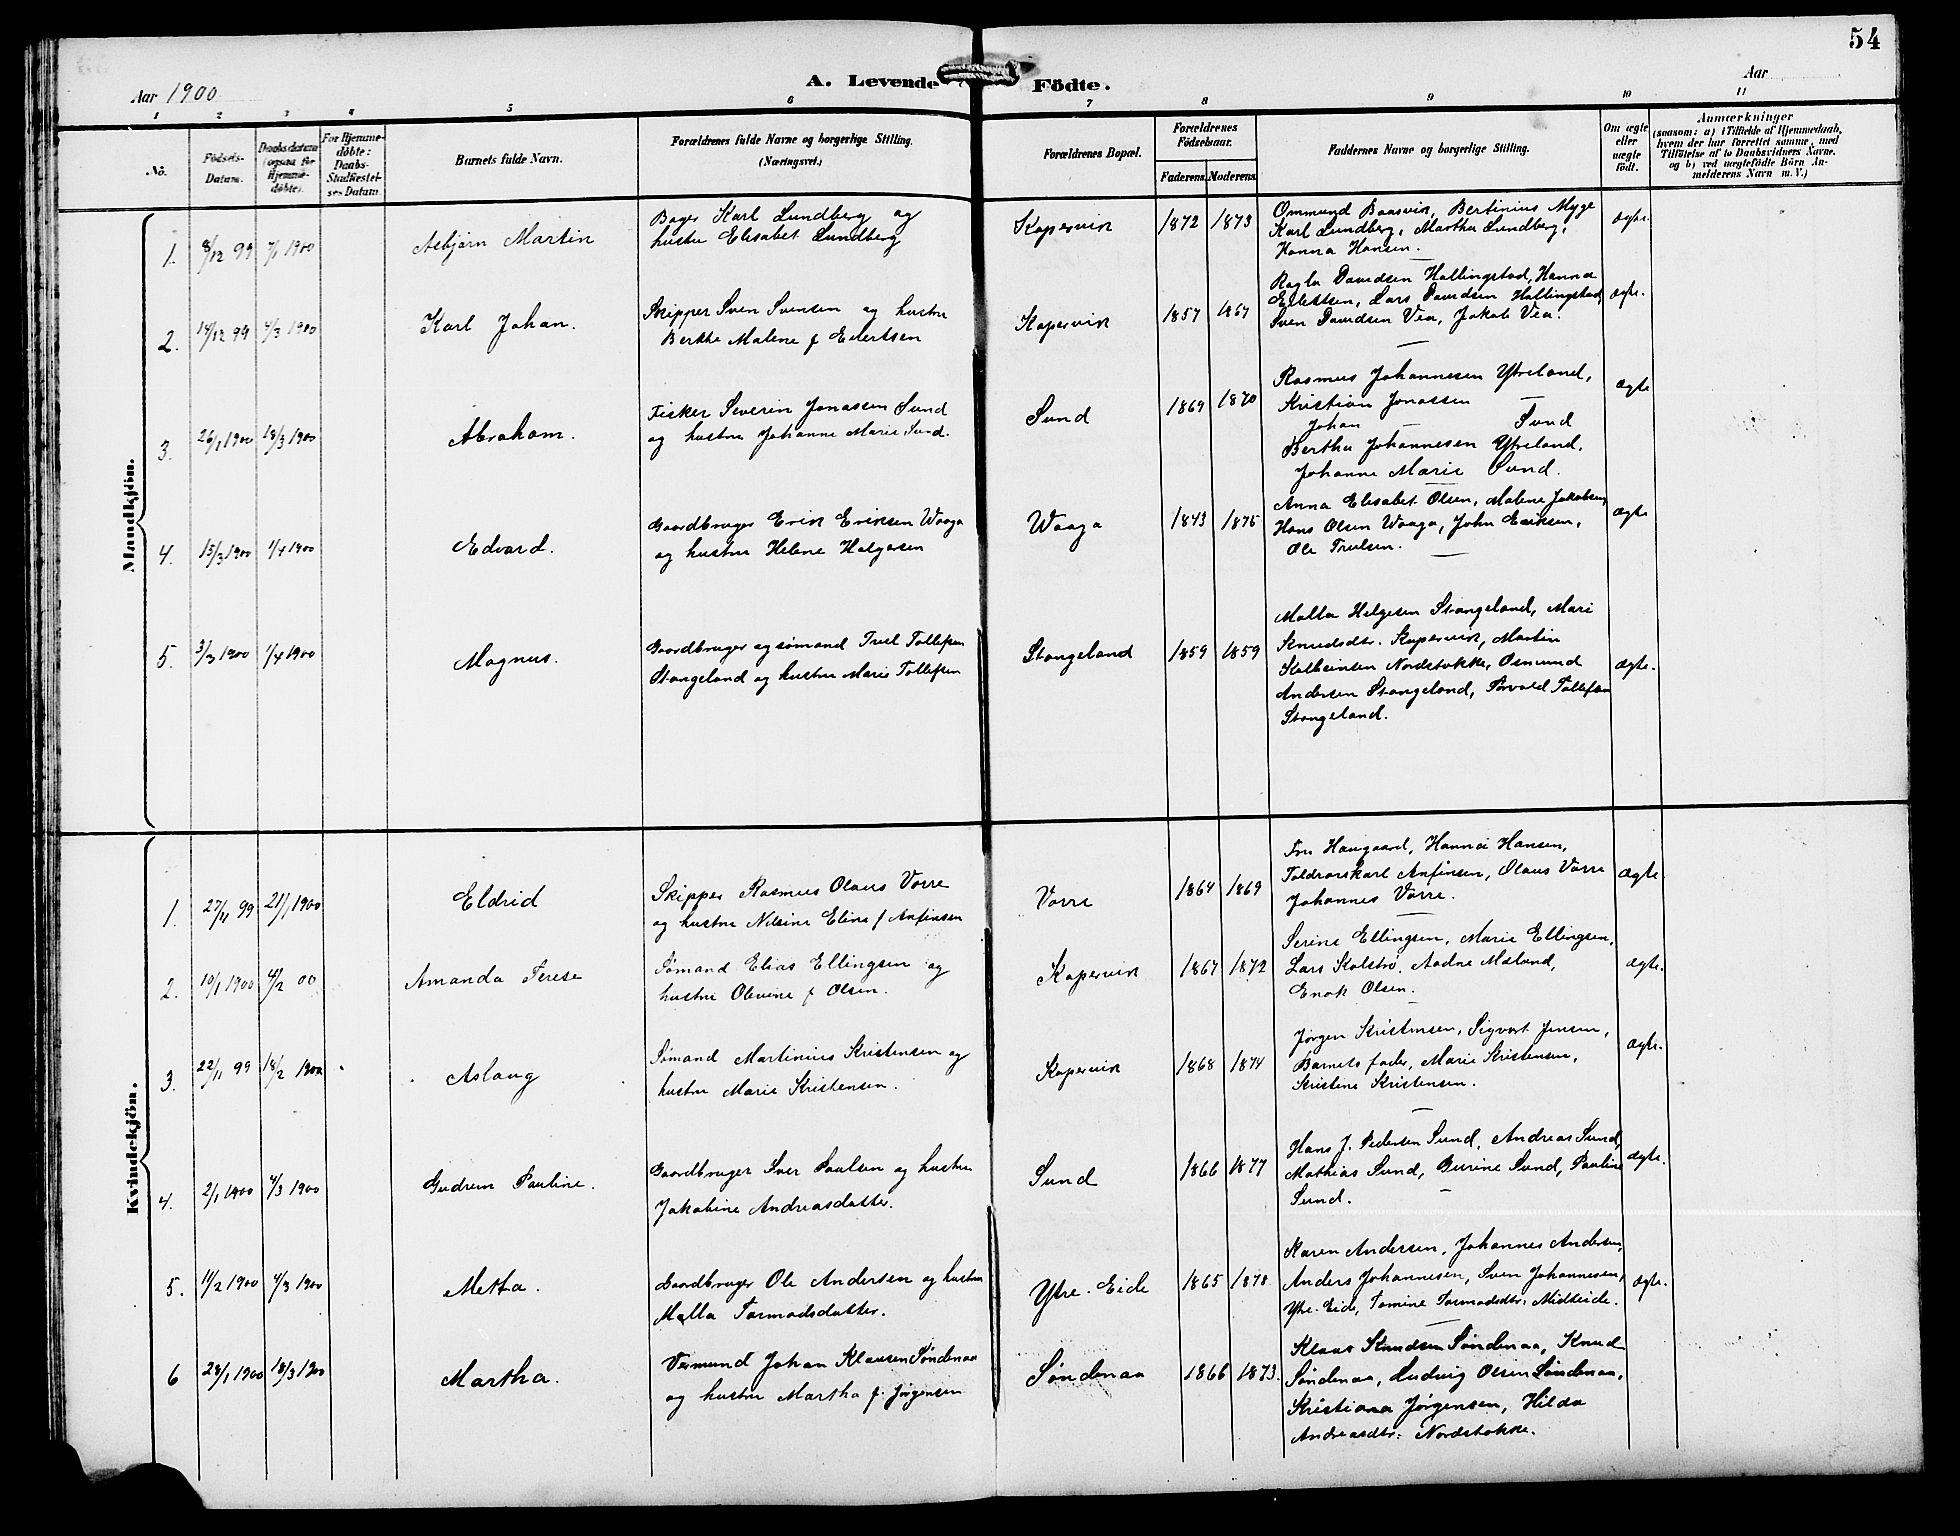 54
Aar 1900
A. Levende Födte.
Aar
1 2 3 4 5 6 7 8 9 10 11
No.
Födsels-Datum.
Daabsdatum (ogsaa for Hjemme-døbte).
For Hjemme-døbte: Daabs-Stadfæstel-ses Datum.
Barnets fulde Navn.
Forældrenes fulde Navne og borgerlige Stilling. (Næringsvei.)
Forældrenes Bopæl.
Forældrenes Födselsaar.
Faderens. Moderens.
Faddernes Navne og borgerlige Stilling.
Om ægte eller uægte födt.
Anmærkninger
(saasom: a) i Tilfælde af Hjemmedaab,
hvem der har forrettet samme, med
Tilföielse af to Daabsvidners Navne.
og b) ved uægtefödte Börn An-
melderens Navn m. V.)
Mandkjön.
1. 8/12 99 7/1 1900 Asbjørn Martin
Bager Karl Lundberg og
hustru Elisabet Lundberg
Kopervik 1872 1873
Ommund Baasvik, Bertinius Myge
Karl Lundberg, Martha Lundberg,
Hanna Hansen.
ægte.
2. 14/12 99 4/3 1900 Karl Johan.
Skipper Sven Svensen og hustru
Berthe Malene f Eilertsen
Kopervik 1857 1867
Ragla Davidsen Hallingstad, Hanna
Eilertsen, Lars Davidsen Hallingstad,
Sven Davidsen Vea, Jakob Vea.
ægte.
3. 26/1 1900 18/3 1900 Abraham.
Fisker Severin Jonassen Sund
og hustru Johanne Marie Sund.
Sund 1869 1870
Rasmus Johannesen Ytreland,
Kristian Jonassen —
Johan — Sund
Bertha Johannesen Ytreland,
Johanne Marie Sund.
ægte
4. 15/3 1900 1/4 1900 Edvard.
Gaardbruger Erik Eriksen Waaga
og hustru Helene Helgesen
Waaga 1843 1875
Anna Elisabet Olsen, Malene Jakobsen,
Hans Olsen Waaga, John Eriksen,
Ole Trulsen.
ægte
5. 3/3 1900 1/4 1900 Magnus.
Gaardbruger og sømand Truel Tollefsen
Stangeland og hustru Marie Tollefsen
Stangeland 1859 1859
Malla Helgesen Stangeland, Mari
Knudsdtr. Kopervik, Martin
Kolbeinsen Nordstokke, Osmund
Andersen Stangeland, Torvald Tollefsen
Stangeland.
ægte.
Kvindekjön.
1. 27/11 99 21/1 1900 Eldrid
Skipper Rasmus Olaus Vorre
og hustru Nilsine Eline f Anfinsen
Vorre 1864 1869
Fru Haugaard, Hanna Hansen,
Toldrorskarl Anfinsen, Olaus Vorre
Johannes Vorre.
ægte
2. 10/1 1900 4/2 00 Amanda Terese
Sømand Elias Ellingsen og
hustru Olevine f Olsen.
Kopervik 1867 1872
Serine Ellingsen, Marie Ellingsen,
Lars Kolstrø, Aadne Mæland,
Enok Olsen.
ægte.
3. 22/11 99 18/2 1900 Aslaug
Sømand Martinius Kristensen og
hustru Marie Kristensen.
Kopervik 1868 1874
Jørgen Kristensen, Sigvart Jensen,
Barnets fader, Marie Kristensen,
Kristine Kristensen.
ægte.
4. 2/1 1900 4/3 1900 Gudrun Pauline.
Gaardbruger Iver Paulsen og hustru
Jakobine Andreasdatter.
Sund 1866 1877
Hans J. Pedersen Sund, Andreas Sund,
Mathias Sund, Burine Sund, Pauline
Sund.
ægte.
5. 11/2 1900 4/3 1900 Metta.
Gaardbruger Ole Andersen og hustru
Malla Tormodsdatter.
Ytre-Eide 1865 1878
Karen Andersen, Johannes Andersen,
Anders Johannesen, Sven Johannesen,
Ytre-Eide, Tomine Tormodsdtr. Midteide.
ægte.
6 28/1 1900 18/3 1900 Martha.
Vermund Johan Klausen Søndenaa
og hustru Martha f. Jørgensen
Søndenaa 1866 1873.
Klaus Knudsen Søndenaa, Knud
Søndenaa, Ludvig Olsen Søndenaa,
Kristiana Jørgensen, Hilda
Andreasdtr. Nordstokke.